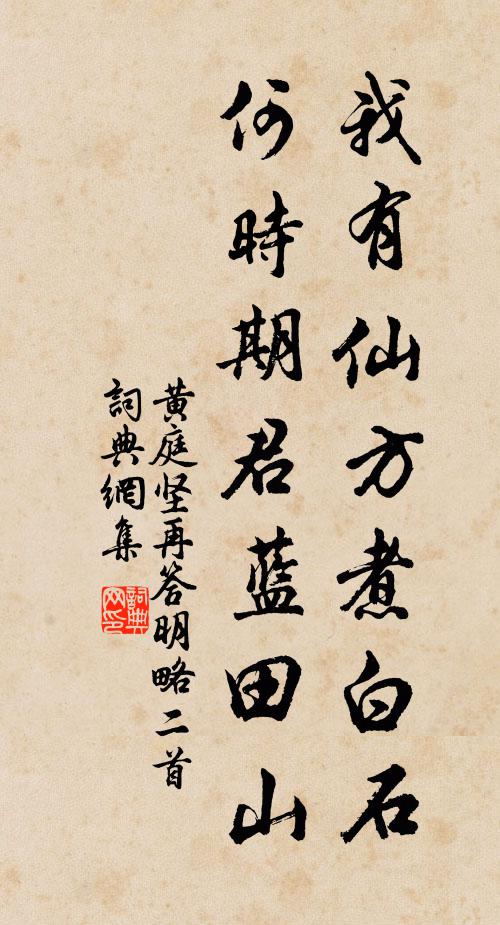 我有仙方煮白石
何時期君藍田山
黄庭坚再答明略二首
詞典網集
詞典网印